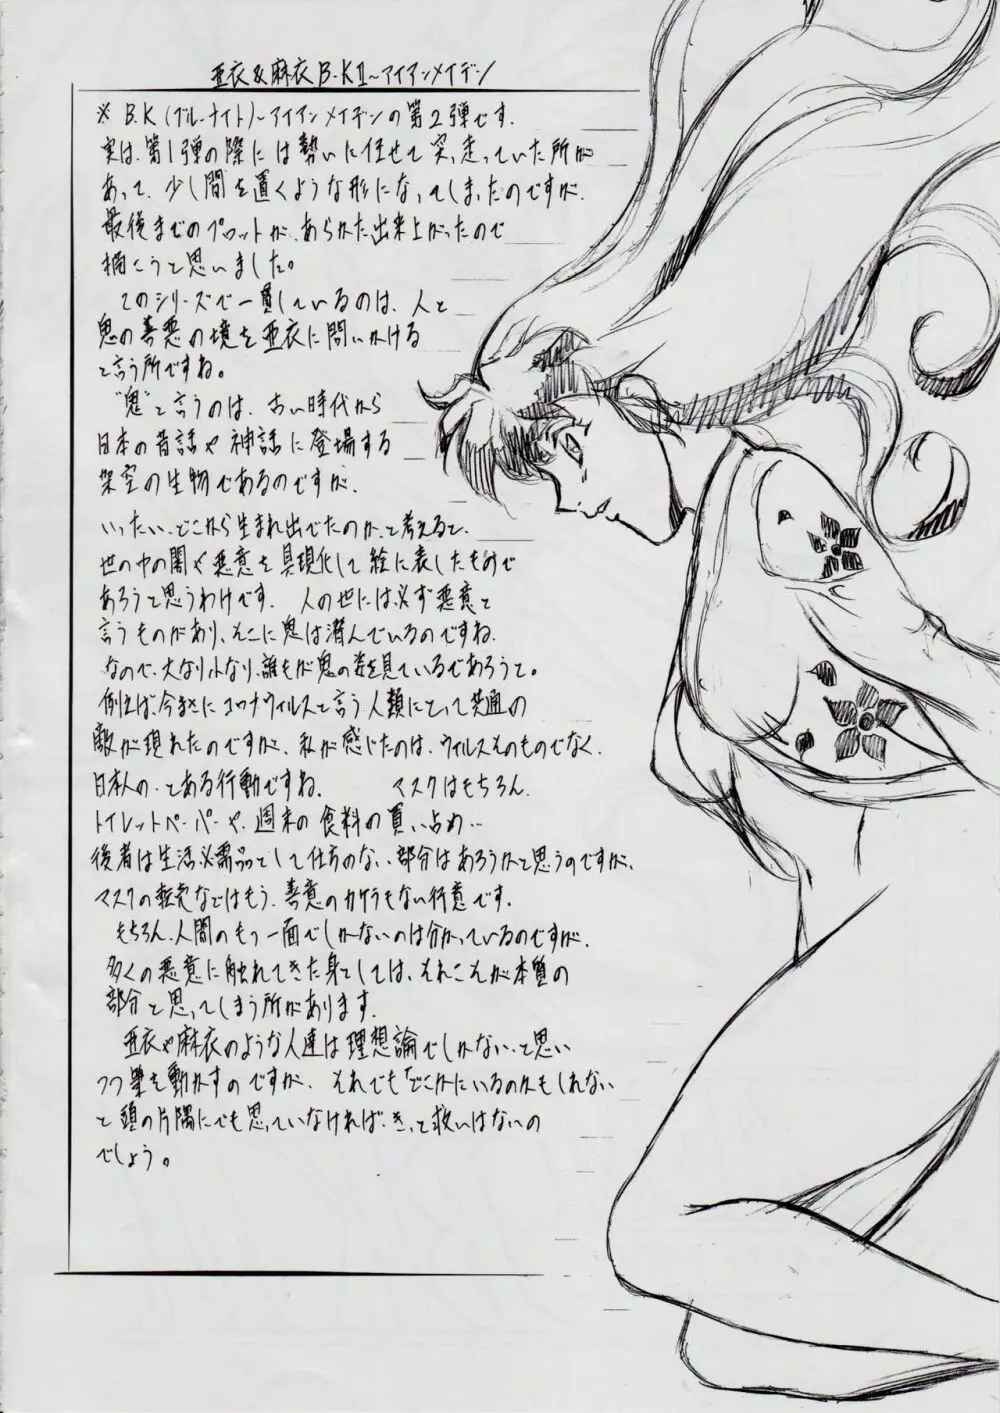 亜衣&麻衣 B.KⅡ~アイアンメイデン
※ B.K(ブルーナイト)~アイアンメイデンの第2弾です.
実は、第1弾の際には勢いに任せて突っ走っていた所が
あって、少し間を置くような形になってしまったのですが、
最後までのプロットが、あらかた出来上がったので
描こうと思いました。
このシリーズで一貫しているのは、人と
鬼の善悪の境を亜衣に問いかける
と言う所ですね。
"鬼"と言うのは、古い時代から
日本の昔話や神話に登場する
架空の生物であるのですが、
いったい、どこから生まれ出でたのか、と考えると、
世の中の闇や悪意を具現化して絵に表したもので
あろうと思うわけです. 人の世には必ず悪意と
言うものがあり、そこに鬼は潜んでいるのですね.
なので、大なり小なり、誰もが鬼の姿を見ているであろうと。
例えば、今まさにコロナウィルスと言う人類にとって共通の
敵が現れたのですが、私が感じたのは、ウィルスそのものでなく、
日本人の、とある行動ですね. マスクはもちろん、
トイレットペーパーや、週末の食料の買い占め…
後者は生活必需品として仕方のない部分はあろうかと思うのですが、
マスクの転売などはもう、善意のカケラもない行為です.
もちろん、人間のもつ一面でしかないのは分かっているのですが、
多くの悪意に触れてきた身としては、それこそが本質の
部分と思ってしまう所があります.
亜衣や麻衣のような人達は理想論でしかない、と思い
つつ筆を動かすのですが、それでも「どこかにいるのかもしれない
と頭の片隅にでも思っていなければ、きっと救いはないの
でしょう。